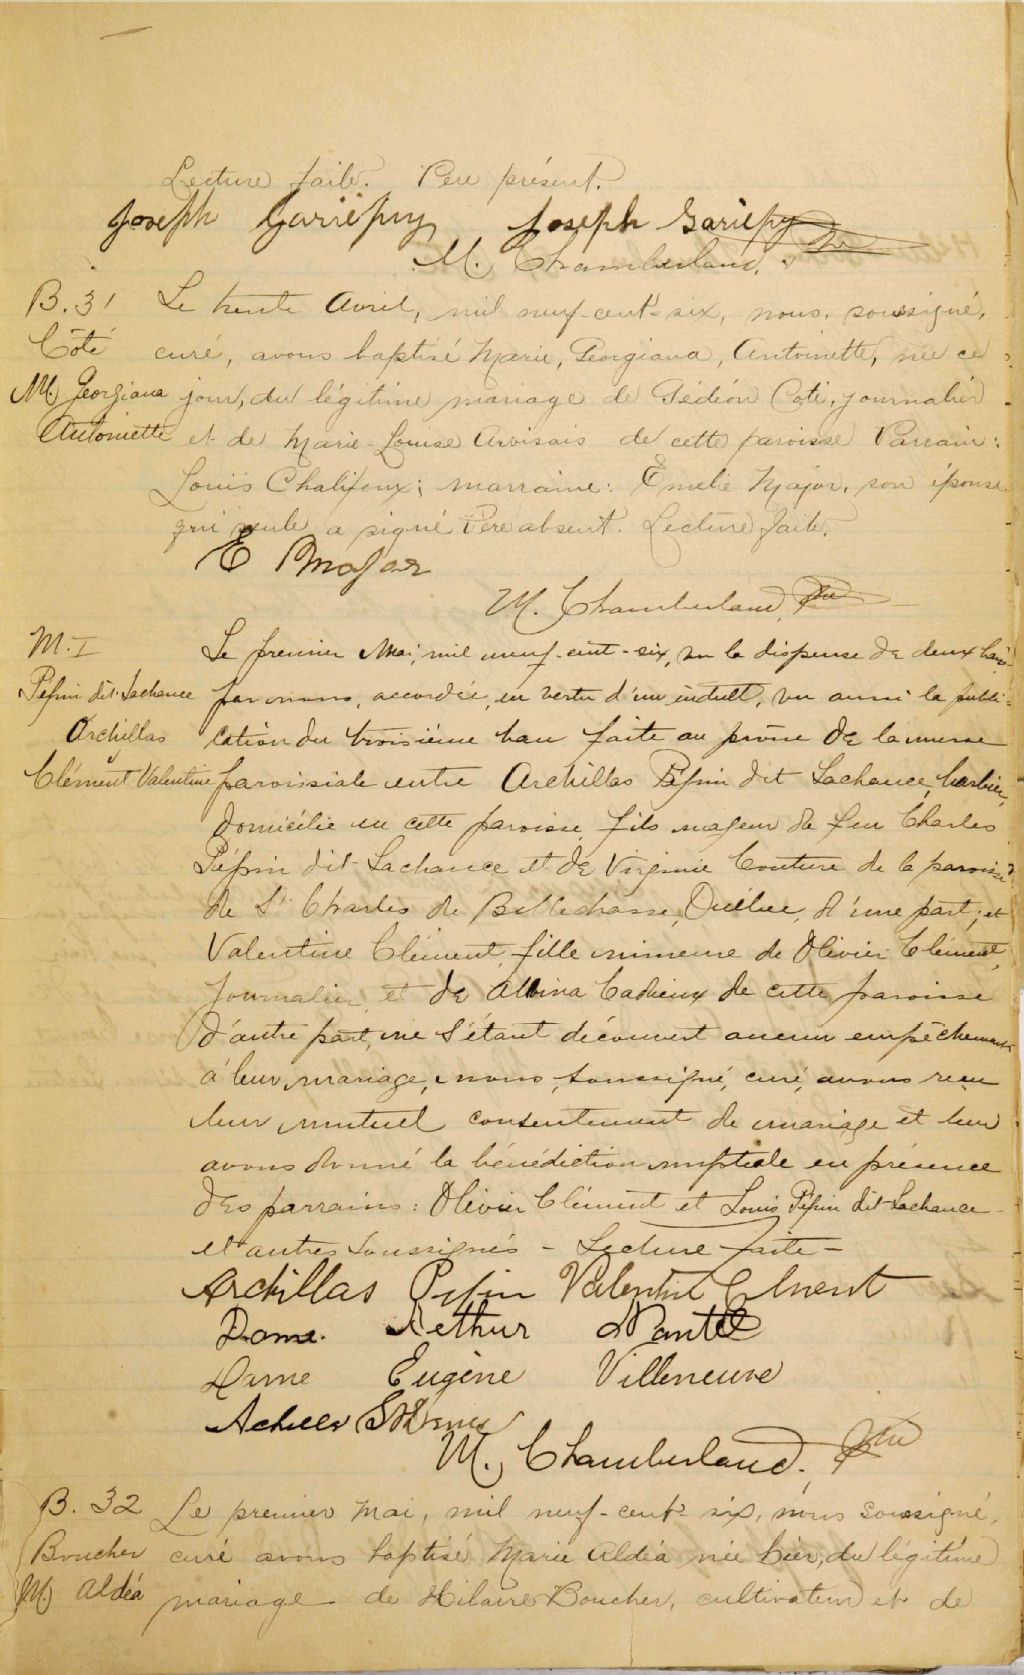 Lecture faite. Père présent.
Joseph Gariépuy Joseph Gariépy
M. Chamberland, ptre
B. 31 Le trente Avril, mil neuf-cent-six, nous, soussigné,
Côté curé, avons baptisé Marie, Georgiana, Antoinette, née ce
M. Georgiana jour, du légitime mariage de Gédéon Coté, journalier
Antoinette et de Marie-Louise Arvisais de cette paroisse Parrain:
Louis Chalifoux; marraine: Emelie Major, son épouse
qui seule a signé Père absent. Lecture faite.
E Major
M. Chamberland, ptre
M. I Le premier Mai, mil neuf-cent-six, vu la dispense de deux bans
Pépin dit Lachance par nous, accordée, en vertu d'un indult, vu aussi la publi-
Archillas cation du troisième ban faite au prône de la messe
Clément Valentine paroissiale entre Archillas Pépin dit Lachance, barbier,
domicilié en cette paroisse, fils majeur de feu Charles
Pépin dit Lachance et de Virginie Couture de la paroisse
de St Charles de Bellechasse, Québec, d'une part; et
Valentine Clément, fille mineure de Olivier Clément,
journalier et de Albina Cadieux de cette paroisse
d'autre part, ne s'étant découvert aucun empêchement
à leur mariage, nous, soussigné, curé, avons reçu
leur mutuel consentement de mariage et leur
avons donné la bénédiction nuptiale en présence
des parrains: Olivier Clément et Louis Pépin dit Lachance
et autres soussignés - Lecture faite -
Archillas Pepin Valentine Clment
Dame. Arthur Nantel
Dame Eugène Villeneuve
Achille
M. Chamberland. ptre
B. 32 Le premier Mai, mil neuf-cent six, nous soussigné,
Boucher curé avons baptisé Marie Aldéa née hier, du légitime
M. Aldéa mariage de Hilaire Boucher, cultivateur et de